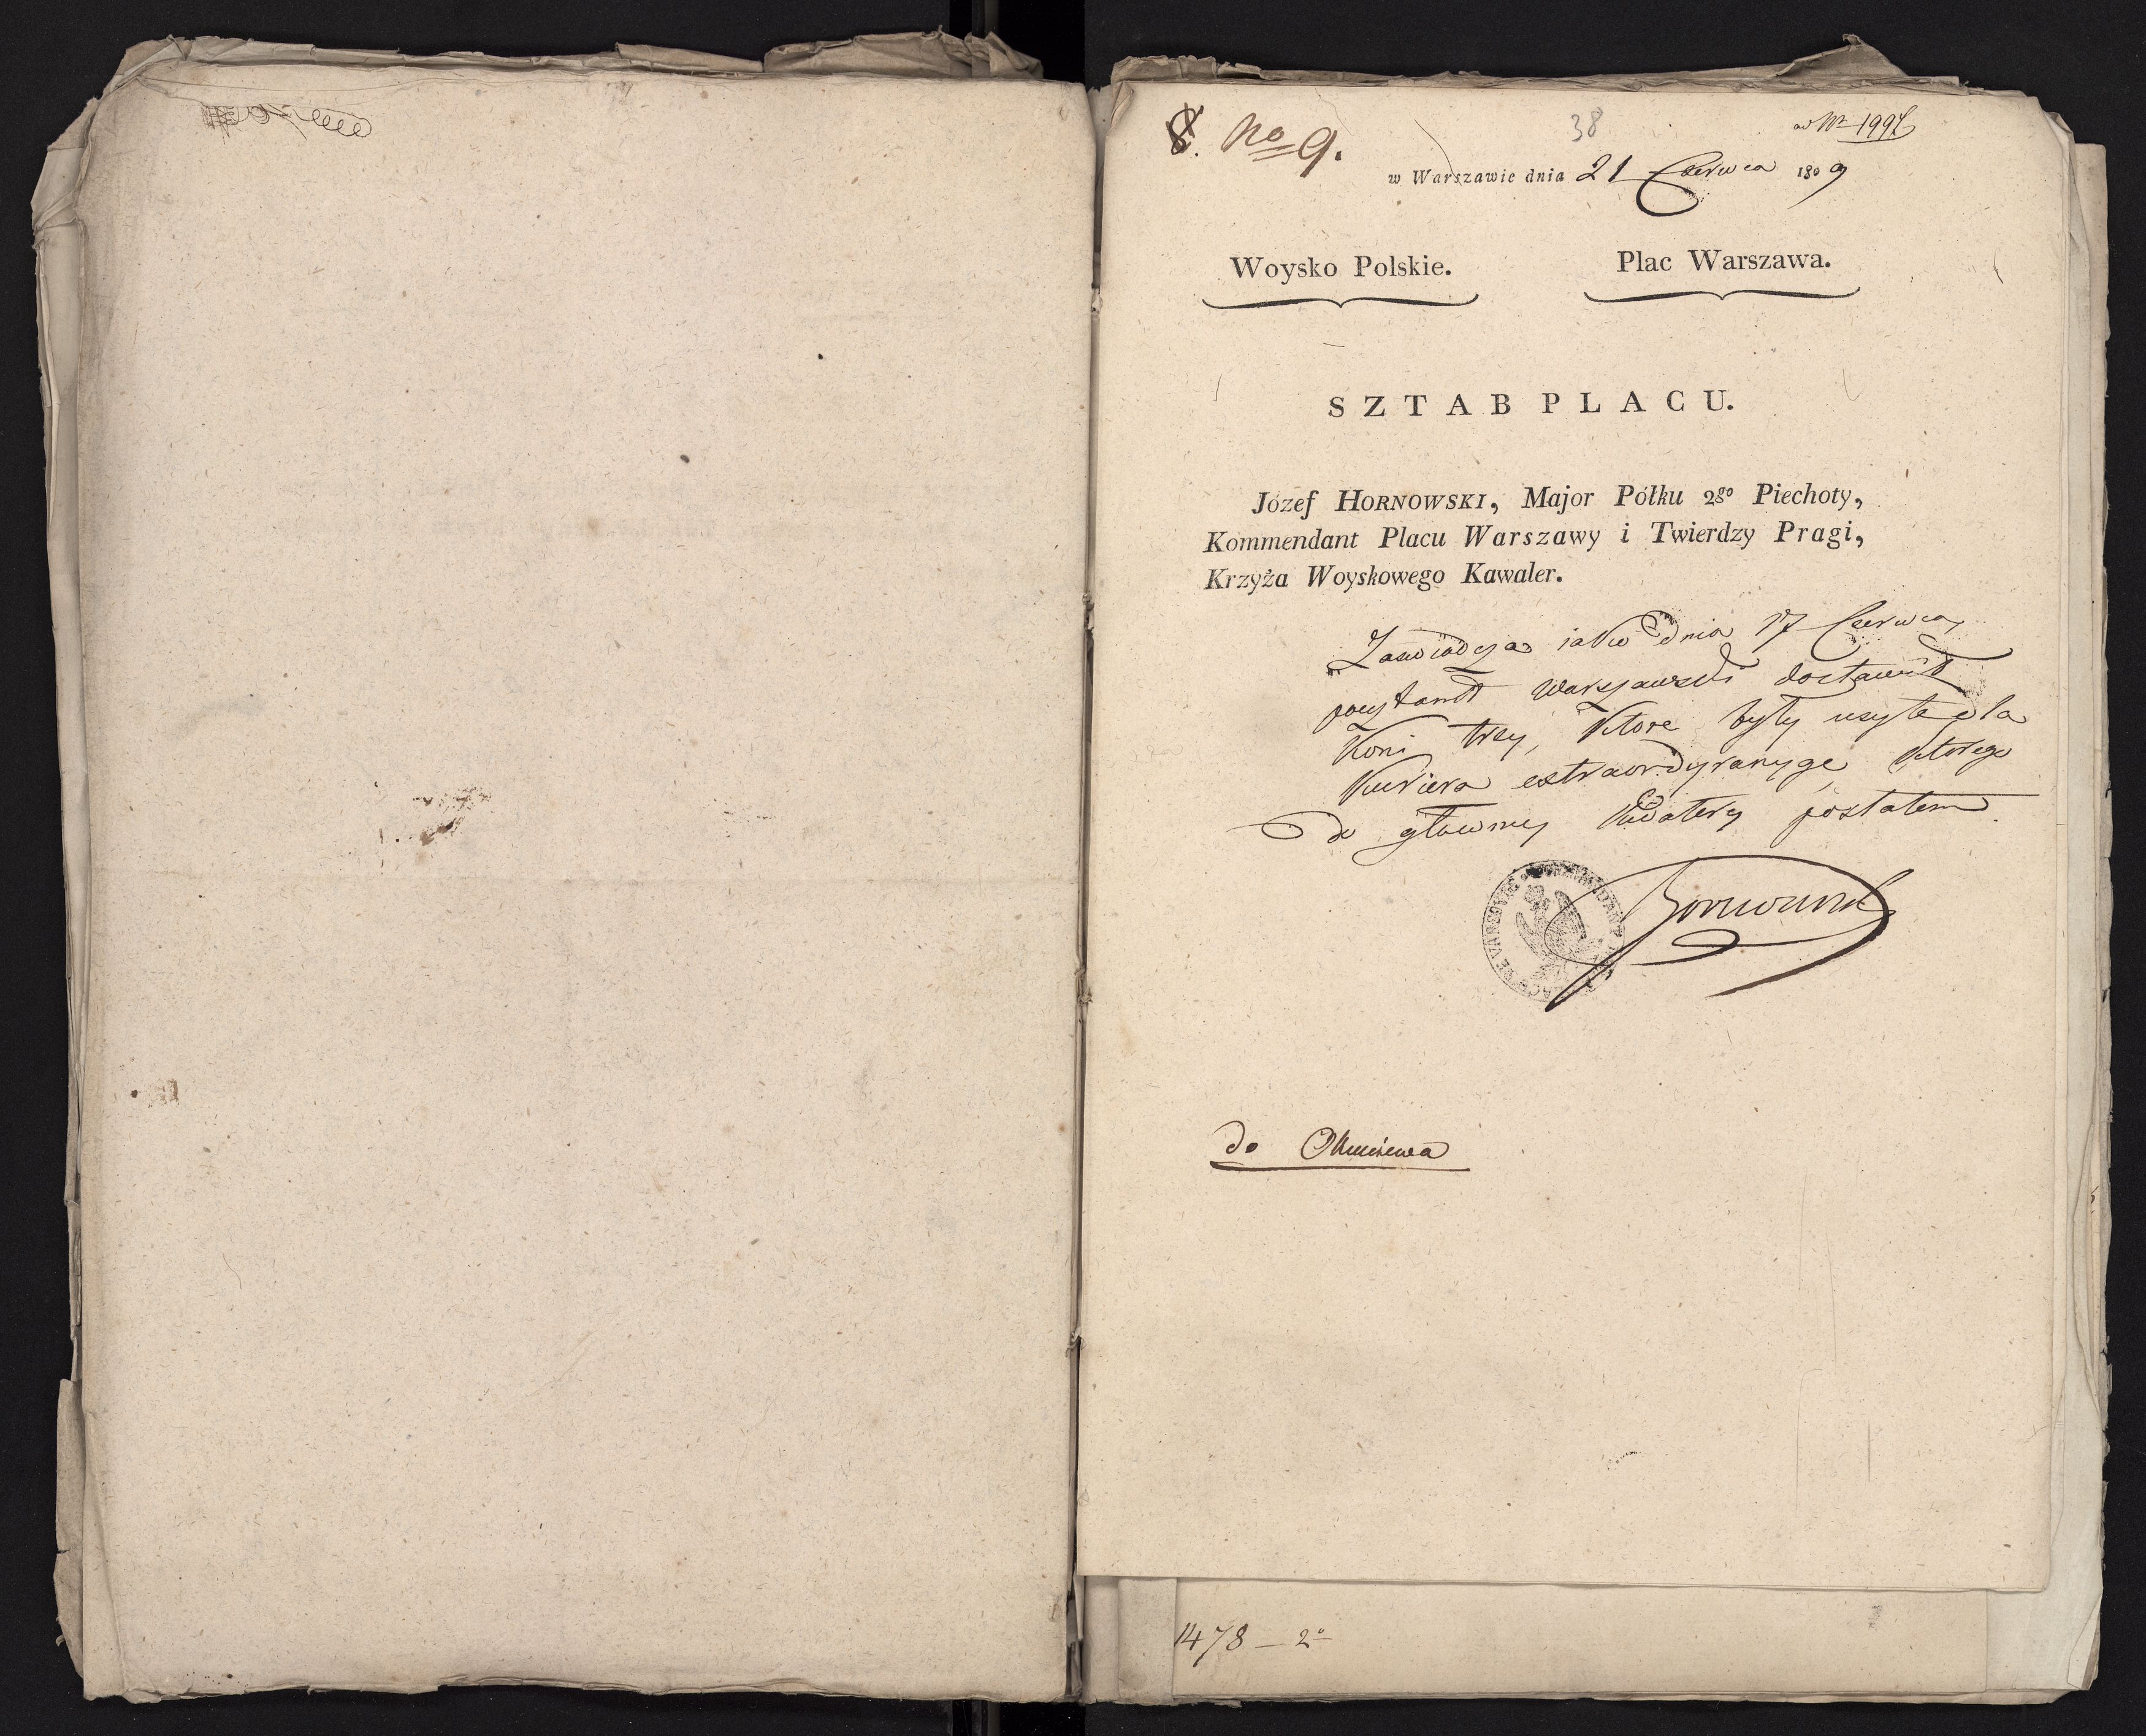 8. No 9.
38
ad Nr 1997
w Warszawie dnia 21 Czerwca 1809
Woysko Polskie.
Plac Warszawa.
SZTAB PLACU.
Józef HORNOWSKI, Major Półku 2go Piechoty,
Kommendant Placu Warszawy i Twierdzy Pragi,
Krzyża Woyskowego Kawaler.
Zaswiadcza iako dnia 17 Czerwca,
pocztamt Warszawski dostawił
Koni trzy, Ktore były uzyte dla
Kuriera extraordyranyge Ktorego
do głowney Kwatery posłałem.
Hornowski
do Okuniewa
1478 – 2o